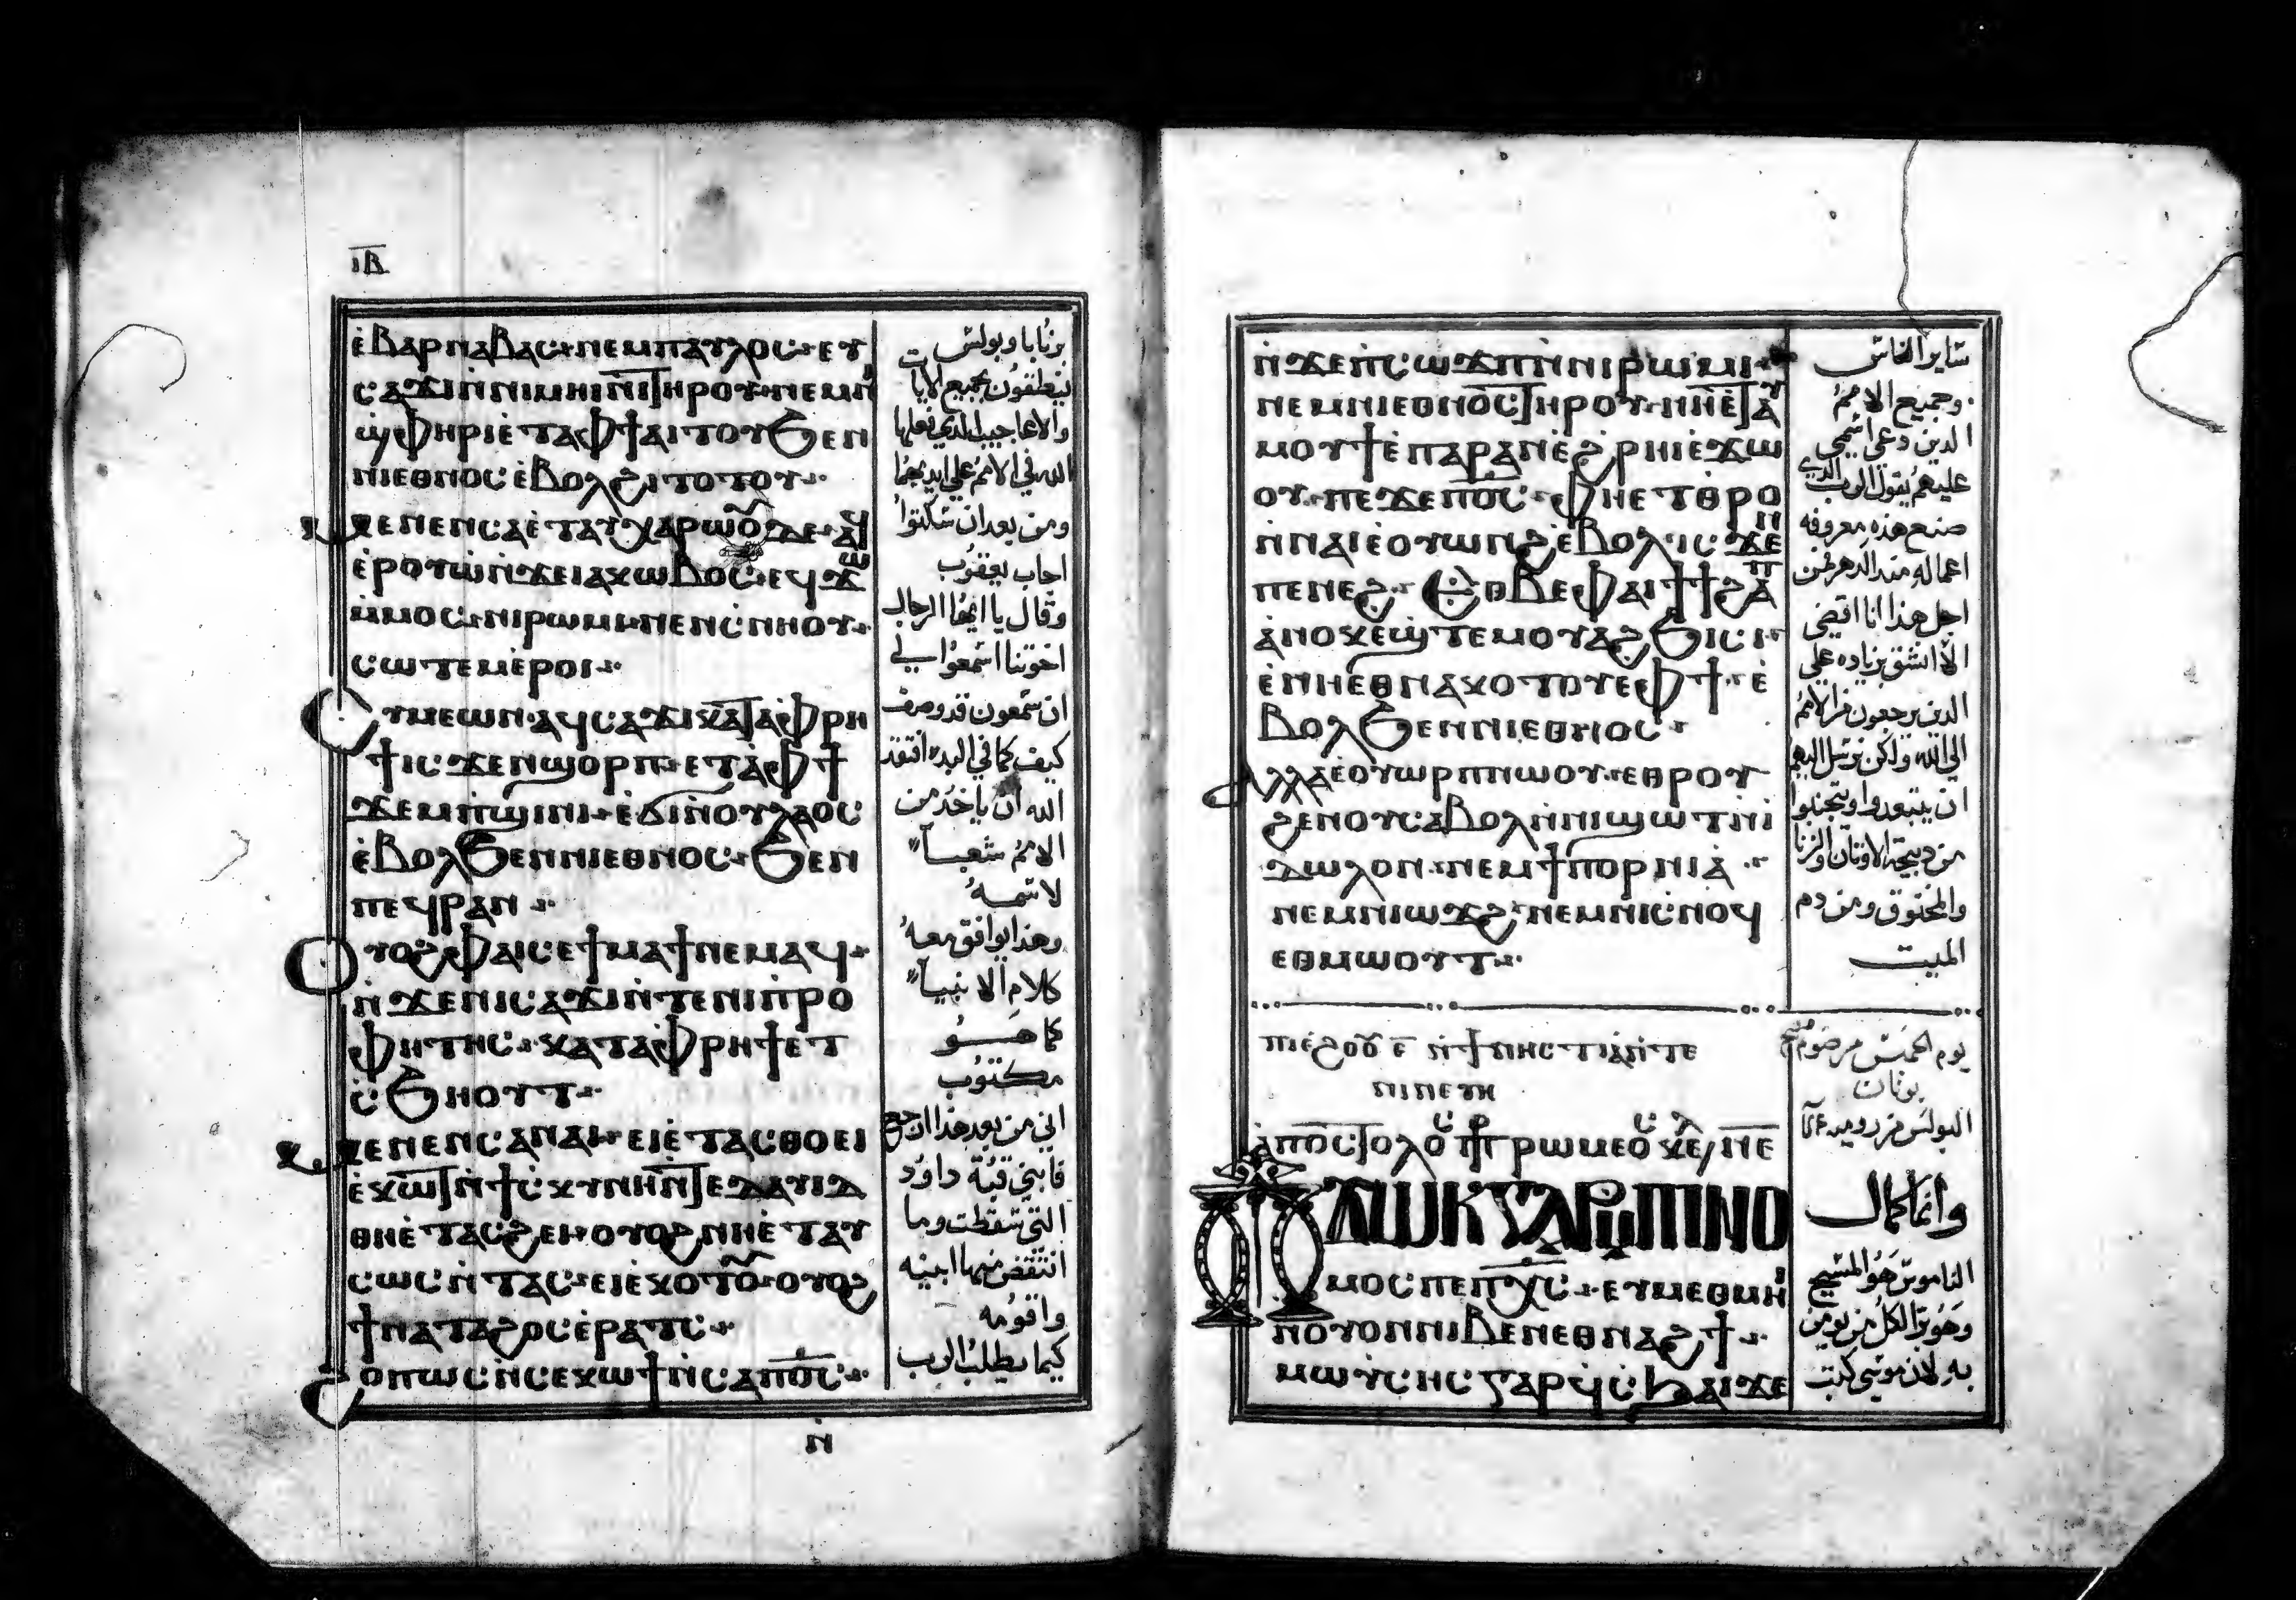 ⲓⲃ
ⲉ̀ⲃⲁⲣⲛⲁⲃⲁⲥ ⲛⲉⲙⲡⲁⲩⲗⲟⲥ ⲉⲩ
ⲥⲁϫⲓⲛ̀ⲛⲓⲙⲏⲓⲛⲓ ⲧⲏⲣⲟⲩ ⲛⲉⲙⲛⲓ
ϣ̀ⲫⲏⲣⲓⲉ̀ⲧⲁⲫϯⲁⲓⲧⲟⲩ ϧⲉⲛ
ⲛⲓⲉⲑⲛⲟⲥ ⲉ̀ⲃⲟⲗϩⲓⲧⲟⲧⲟⲩ
ⲙⲉⲛⲉⲛⲥⲁⲉ̀ⲧⲁⲩⲭⲁⲣⲱⲟⲩ ⲇⲉ ⲁϥ
ⲉ̀ⲣⲟⲩⲱ̀ⲛ̀ϫⲉⲓⲁⲕⲱⲃⲟⲥ ⲉϥϫⲱ
ⲙ̀ⲙⲟⲥ ⲛⲓⲣⲱⲙⲓ ⲛⲉⲛⲥ̀ⲛⲏⲟⲩ
ⲥⲱⲧⲉⲙⲉ̀ⲣⲟⲓ
ⲥⲩⲙⲉⲱⲛ ⲁϥⲥⲁϫⲓ ⲕⲁⲧⲁⲫ̀ⲣⲏ
ϯ ⲓⲥϫⲉⲛϣⲟⲣⲡ ⲉⲧⲁ̀ⲫϯ
ϫⲉⲙⲡ̀ϣⲓⲛⲓ ⲉ̀ϭⲓⲛ̀ⲟⲩⲗⲁⲟⲥ
ⲉ̀ⲃⲟⲗϧⲉⲛⲛⲓⲉⲑⲛⲟⲥ ϧⲉⲛ
ⲡⲉϥⲣⲁⲛ
ⲟⲩⲟϩ ⲫⲁⲓ ⲥⲉϯⲙⲁϯⲛⲉⲙⲁϥ
ⲛ̀ϫⲉⲛⲓⲥⲁϫⲓⲛ̀ⲧⲉⲛⲓⲡ̀ⲣⲟ
ⲫⲏⲧⲏⲥ ⲕⲁⲧⲁⲫ̀ⲣⲏϯⲉⲧ
ⲥ̀ϧⲏⲟⲩⲧ
ⲙⲉⲛⲉⲛⲥⲁⲛⲁⲓ ⲉⲓⲉ̀ⲧⲁⲥⲑⲟ ⲉⲓ
ⲉ̀ⲕⲱⲧ ⲛ̀ϯⲥ̀ⲕⲩⲛⲏ ⲛ̀ⲧⲉⲇⲁⲩⲓⲇ
ⲑⲏⲉ̀ⲧⲁⲥϩⲉⲓ ⲟⲩⲟϩ ⲛⲏⲉ̀ⲧⲁⲩ
ⲥⲱⲥⲛ̀ⲧⲁⲥ ⲉⲓⲉ̀ⲕⲟⲧⲟⲩ ⲟⲩⲟϩ
ϯⲛⲁⲧⲁϩⲟⲥ ⲉ̀ⲣⲁⲧⲥ
ϩⲟⲡⲱⲥ ⲛ̀ⲥⲉⲕⲱϯⲛ̀ⲥⲁⲡϭⲟⲓⲥ
ⲛ̀
برنابا وبولس
ينطقون بجميع الايات
والاعاجيب الذي فعلها
الله في الامم علي ايديهما
ومن بعد ان سكتوا
اجاب يعقوب
وقال يا ايها الرجال
اخوتنا اسمعوا لي
ان سمعون قد وصف
كيف كما في البدء افتقد
الله ان ياخذ من
الامم شعباً
لاسمه
وهذا يوافق معه
كلام الانبياً
كما هو
مكتوب
اني من بعد هذا ارجع
فابني قبة داود
التي سقطت وما
انتقض منها ابنيه
واقومه
كيما يطلب الرب
ⲛ̀ϫⲉⲡ̀ⲥⲱϫⲡ̀ⲛ̀ⲛⲓⲣⲱⲙⲓ
ⲛⲉⲙⲛⲓⲉⲑⲛⲟⲥ ⲧⲏⲣⲟⲩ ⲛⲏⲉ̀ⲧⲁⲩ
ⲙⲟⲩϯⲉ̀ⲡⲁⲣⲁⲛⲉ̀ϩ̀ⲣⲏⲓⲉ̀ϫⲱ
ⲟⲩ ⲡⲉϫⲉⲡϭⲟⲓⲥ ⲫⲏⲉⲧⲑⲣⲟ
ⲛ̀ⲛⲁⲓⲉⲟⲩⲱⲛϩⲉ̀ⲃⲟⲗ ⲓⲥϫⲉⲛ
ⲡⲉⲛⲉϩ ⲉⲑⲃⲉⲫⲁⲓ ϯϯϩⲁⲡ
ⲁ̀ⲛⲟⲕ ⲉ̀ϣ̀ⲧⲉⲙⲟⲩⲁϩϧⲓⲥⲓ
ⲉ̀ⲛⲏⲉⲑⲛⲁⲕⲟⲧⲟⲩ ⲉⲫϯ ⲉ̀
ⲃⲟⲗϧⲉⲛⲛⲓⲉⲑⲛⲟⲥ
ⲁⲗⲗⲁⲉ̀ⲟⲩⲱⲣⲡⲛⲱⲟⲩ ⲉⲑⲣⲟⲩ
ϩⲉⲛⲟⲩⲥⲁⲃⲟⲗⲛ̀ⲛⲓϣⲱⲧⲛ̀ⲓ̀
ⲇⲱⲗⲟⲛ ⲛⲉⲙϯⲡⲟⲣⲛⲓⲁ̀
ⲛⲉⲙⲛⲓⲱϫϩ ⲛⲉⲙⲛⲓⲥ̀ⲛⲟϥ
ⲉⲑⲙⲱⲟⲩⲧ
ⲡⲓⲉ̀ϩⲟⲟⲩ ⲉ̅ ⲛ̀ϯⲛⲏⲥⲧⲓⲁ̀ⲛ̀ⲧⲉ
ⲛⲓⲛⲉⲩⲏ
ⲁ̀ⲡⲟⲥⲧⲟⲗⲟⲥ ⲡⲣ ⲣⲱⲙⲉⲟⲥ ⲕⲉⲗ ⲛⲉ
ⲡϫⲱⲕ ⲅⲁⲣ ⲙⲡⲓⲛⲟ
ⲙⲟⲥ ⲡⲉ ⲡⲭ̅ⲥ̅ ⲉⲩⲙⲉⲑⲙⲏⲓ
ⲛ̀ⲟⲩⲟⲛⲛⲓⲃⲉⲛⲉⲑⲛⲁϩϯ
ⲙⲱⲩ̀ⲥⲏⲥ ⲅⲁⲣ ϥ̀ⲥ̀ϧⲁⲓ ϫⲉ
ساير الناس
وجميع الامم
الذين دعي اسمي
عليهم يقول الرب الذي
صنع هذه معروفه
اعماله منذ الدهر من
اجل هذا انا اقضي
الا نشق بزياده علي
الذين يرجعون من الامم
الي الله ولكن نرسل اليهم
ان يبتعدوا ويتجنبوا
من ذبيحة الاوثان والزنا
والمخنوق ومن دم
الميت
يوم الخميس من صوم
يونان
البولس من روميه
وانما كمال
الناموس هو المسيح
وهو بر الكل من يومن
به لان موسي كتب